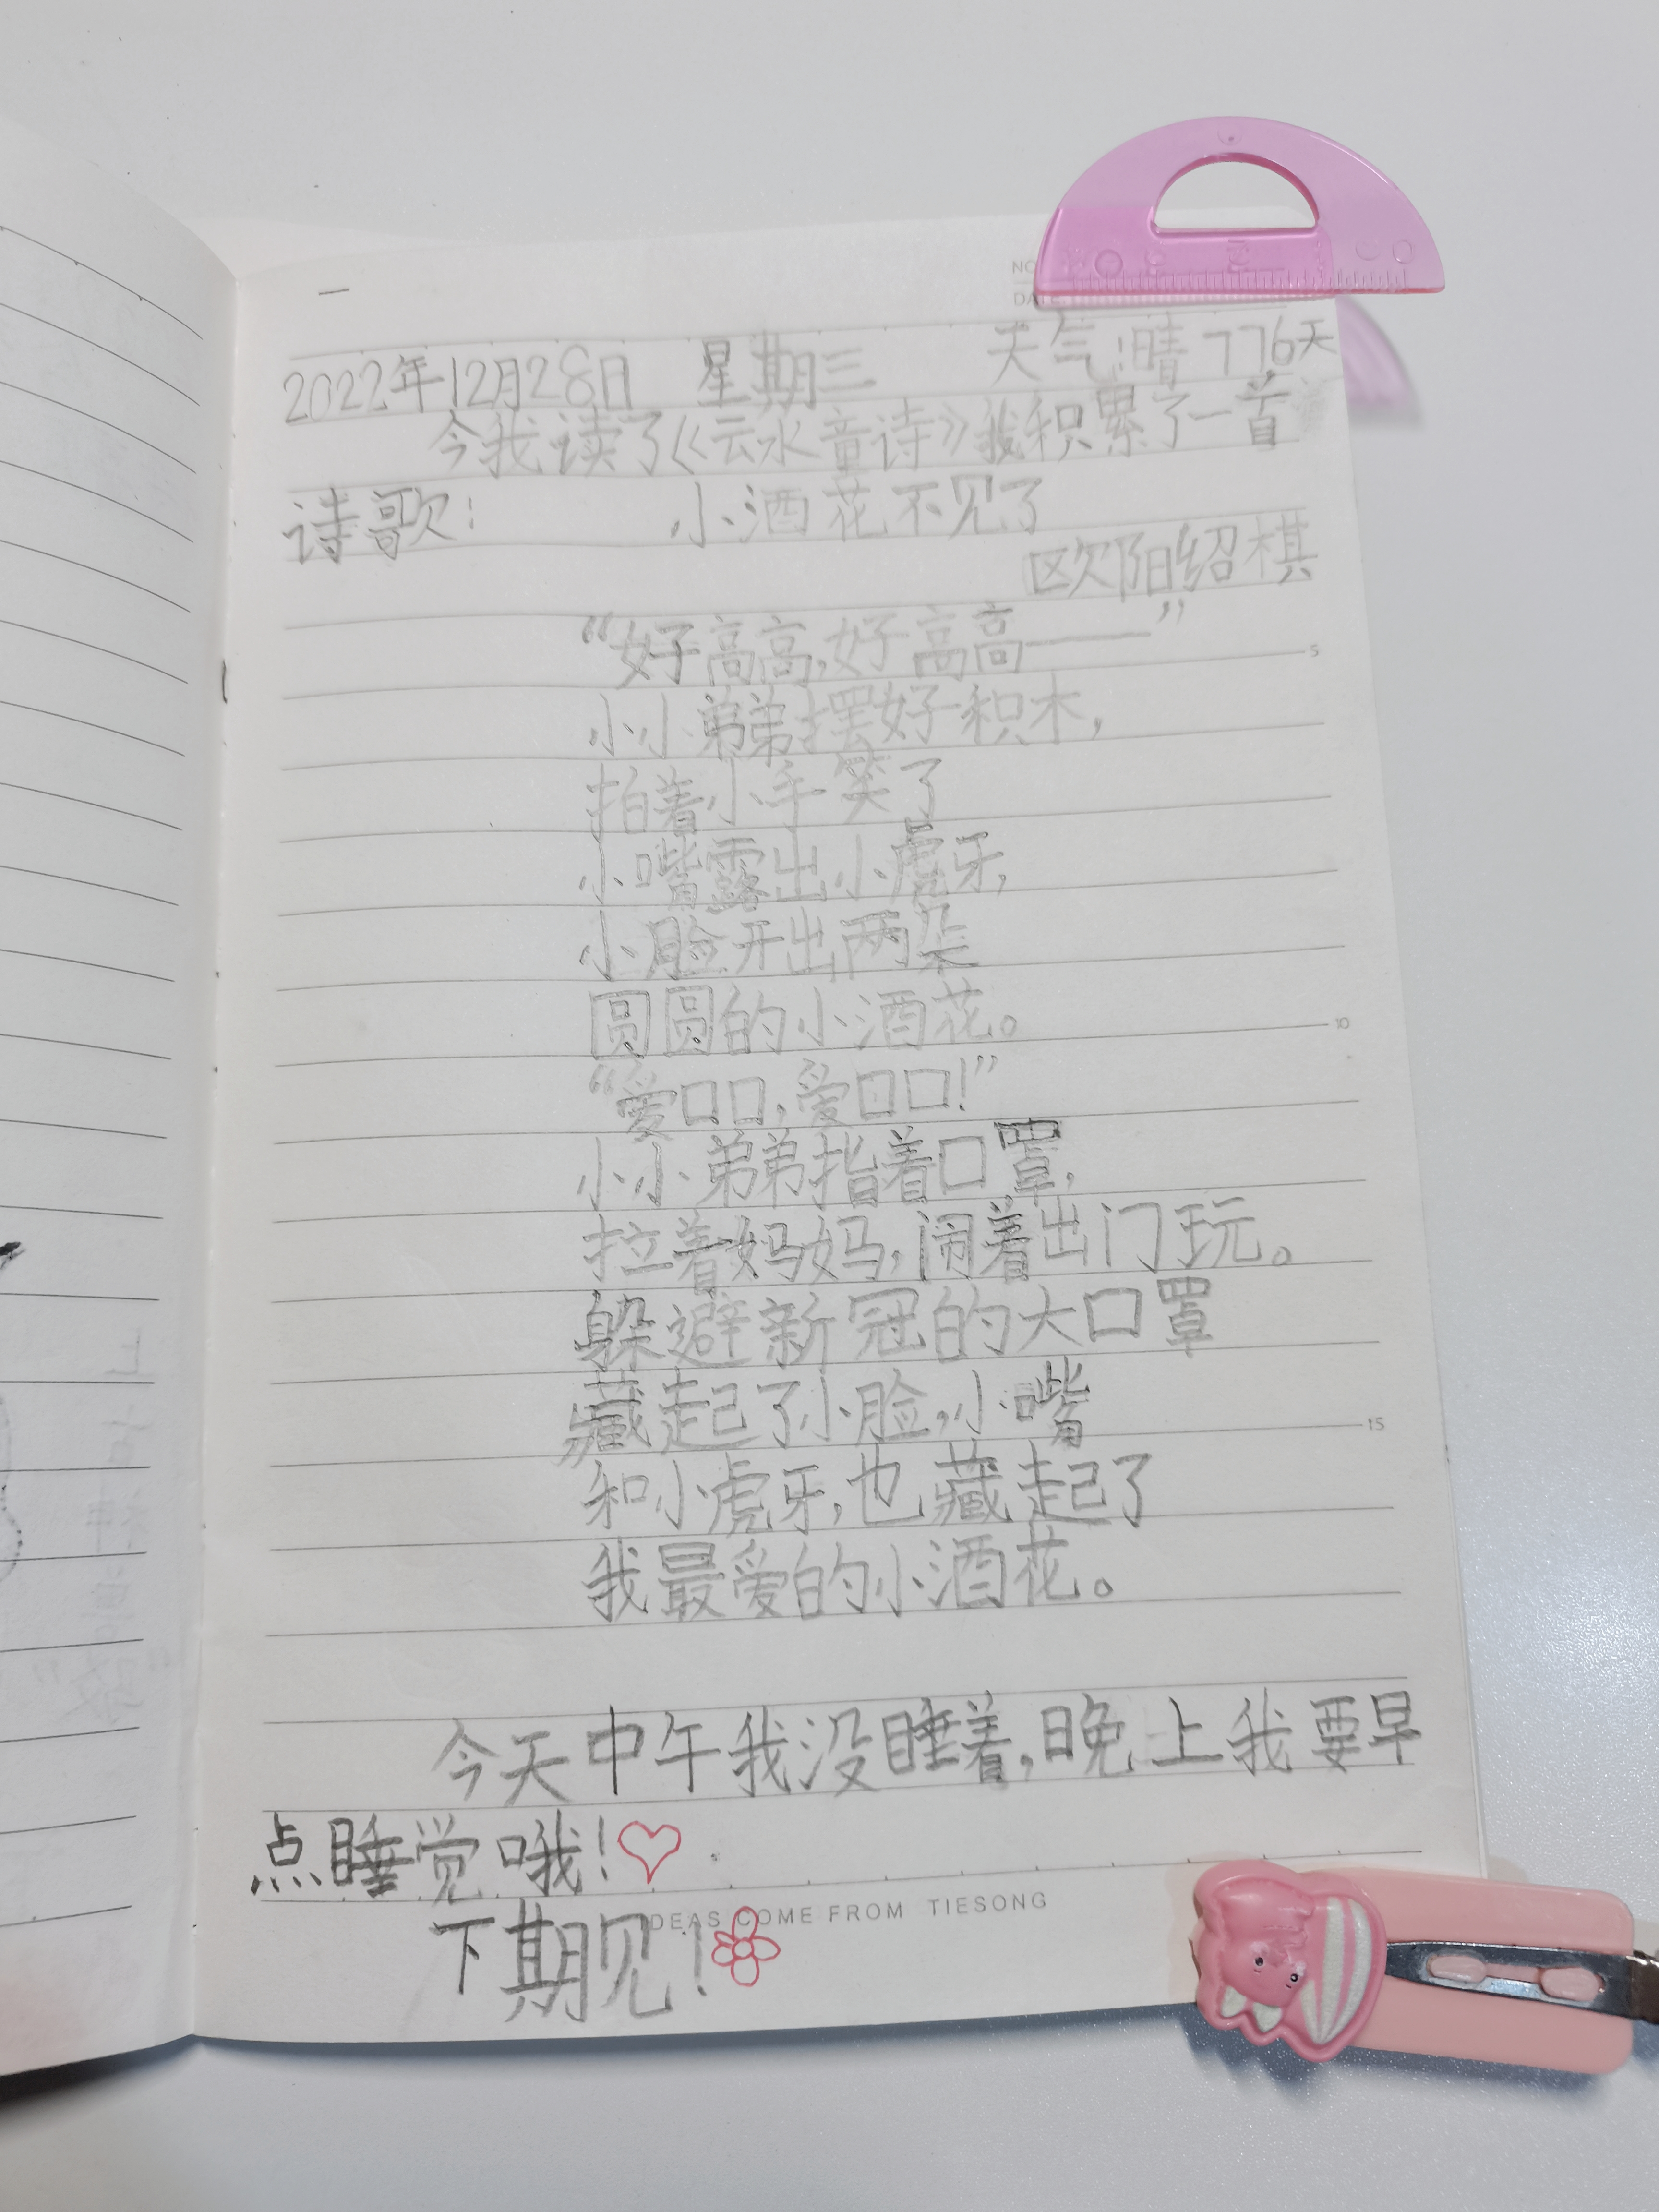 NO
DATE
2022年12月28日 星期三 天气:晴 776天
今我读了《云水童诗》我积累了一首
诗歌: 小酒花不见了
欧阳绍棋
“好高高,好高高——”
小小弟弟摆好积木,
拍着小手笑了
小嘴露出小虎牙,
小脸开出两朵
圆圆的小酒花。
“爱口口,爱口口!”
小小弟弟指着口罩,
拉着妈妈,闹着出门玩。
躲避新冠的大口罩
藏起了小脸,小嘴
和小虎牙,也藏起了
我最爱的小酒花。
今天中午我没睡着,晚上我要早
点睡觉哦!
IDEAS COME FROM TIESONG
下期见!
5
10
15